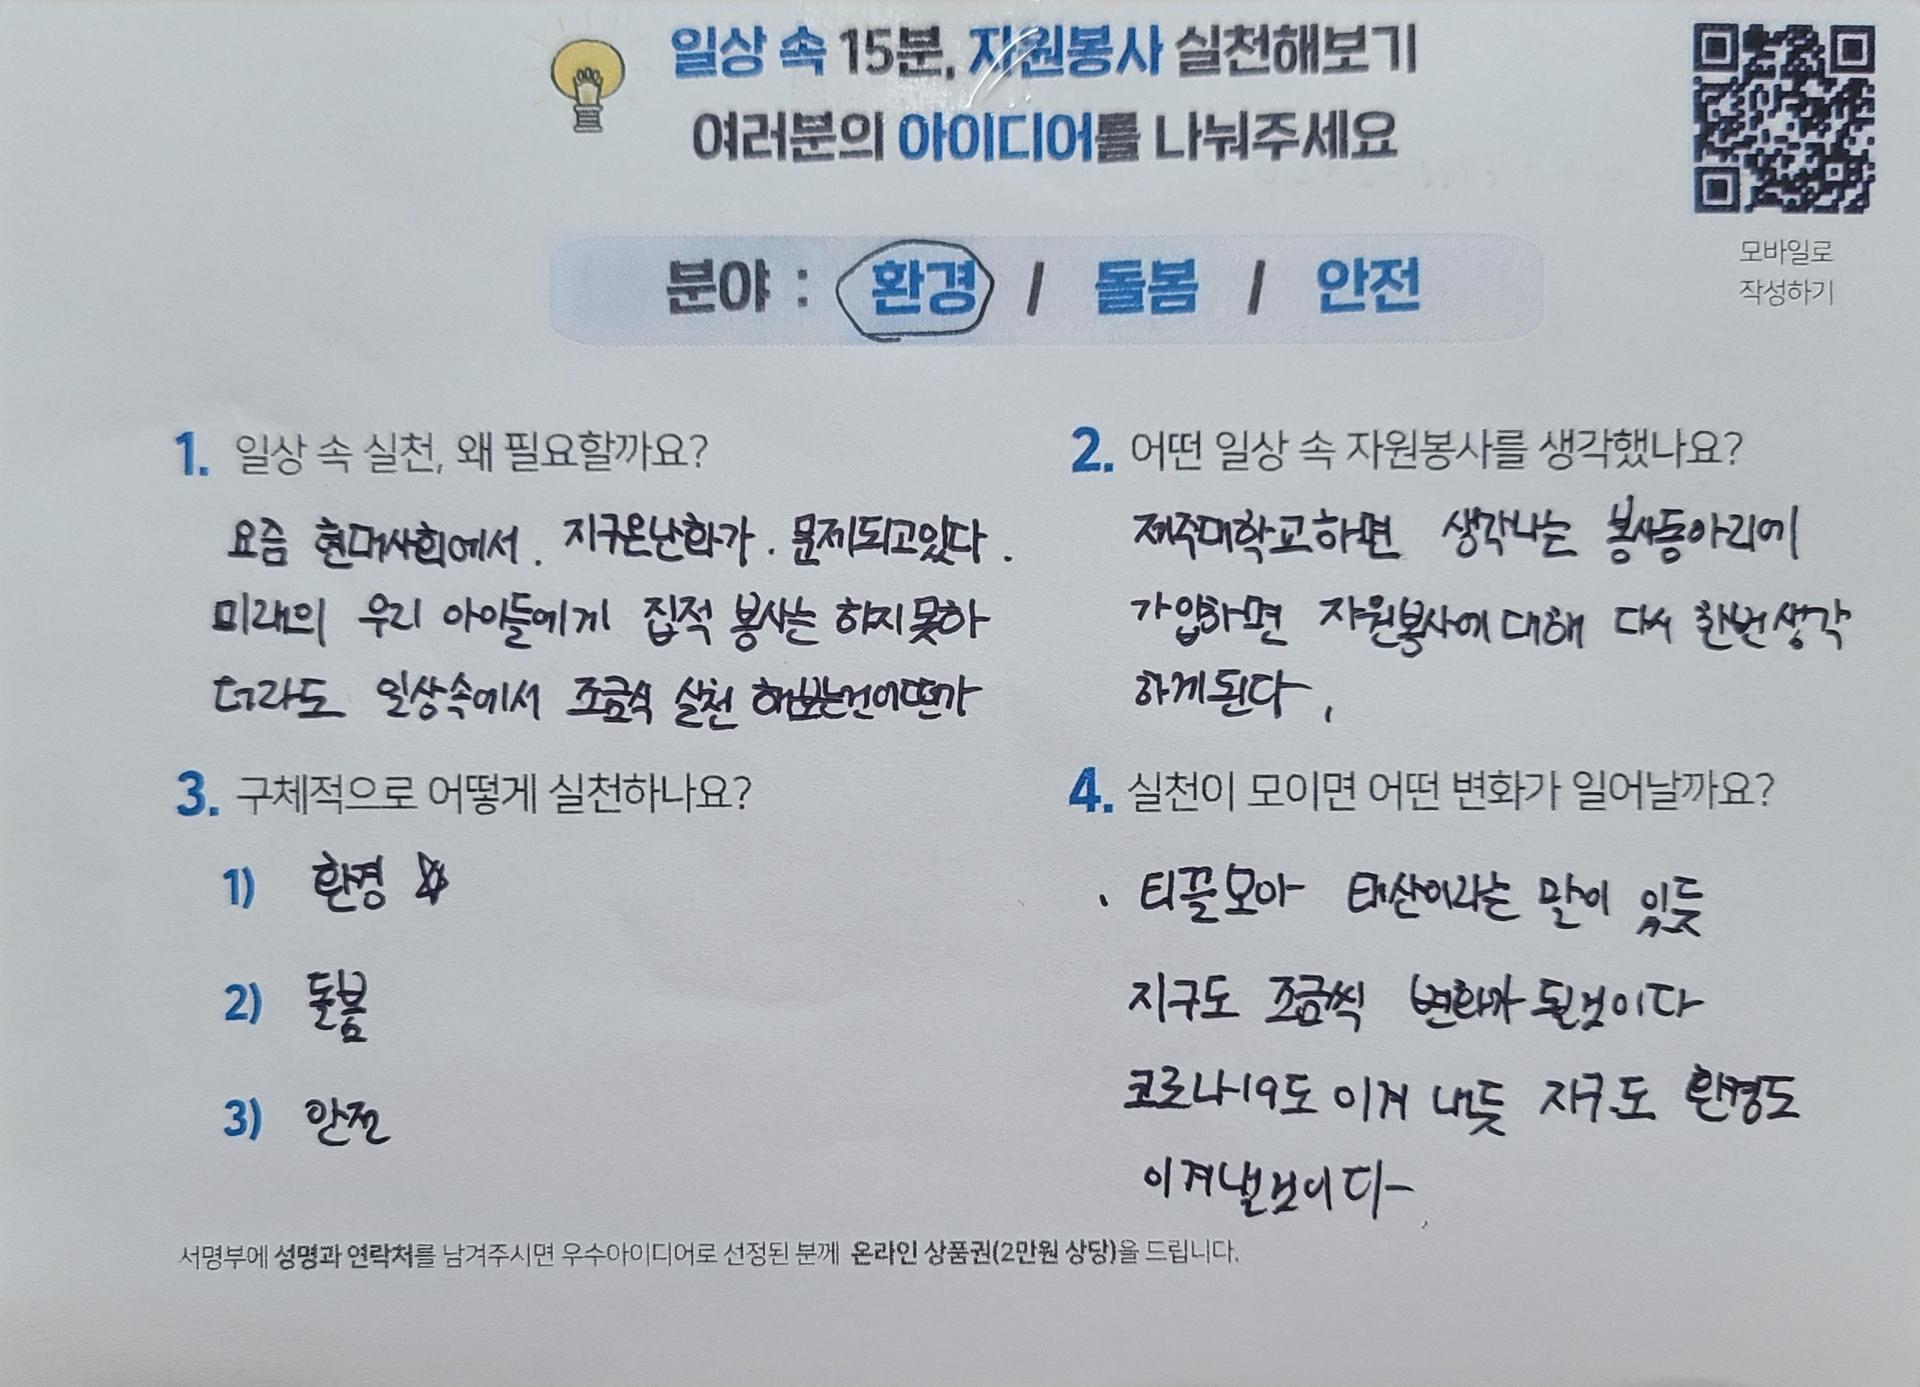 일상 속 15분, 자원봉사 실천해보기
여러분의 아이디어를 나눠주세요
모바일로
작성하기
분야 : 환경 / 돌봄 / 안전
1. 일상 속 실천, 왜 필요할까요?
요즘 현대사회에서. 지구온난화가. 문제되고있다.
미래의 우리 아이들에게 집적 봉사는 하지못하
더라도 일상속에서 조금식 실천 해보는건어떤가
2. 어떤 일상 속 자원봉사를 생각했나요?
제주대학교하면 생각나는 봉사동아리에
가입하면 자원봉사에대해 다시 한번생각
하게된다.
3. 구체적으로 어떻게 실천하나요?
1) 환경 ☆
2) 돌봄
3) 안전
4. 실천이 모이면 어떤 변화가 일어날까요?
티끌모아 태산이라는 말이 있듯
지구도 조금씩 변화가 될것이다
코로나19도 이겨 내듯 지구도 환경도
이겨낼것이다
서명부에 성명과 연락처를 남겨주시면 우수아이디어로 선정된 분께 온라인 상품권(2만원 상당)을 드립니다.